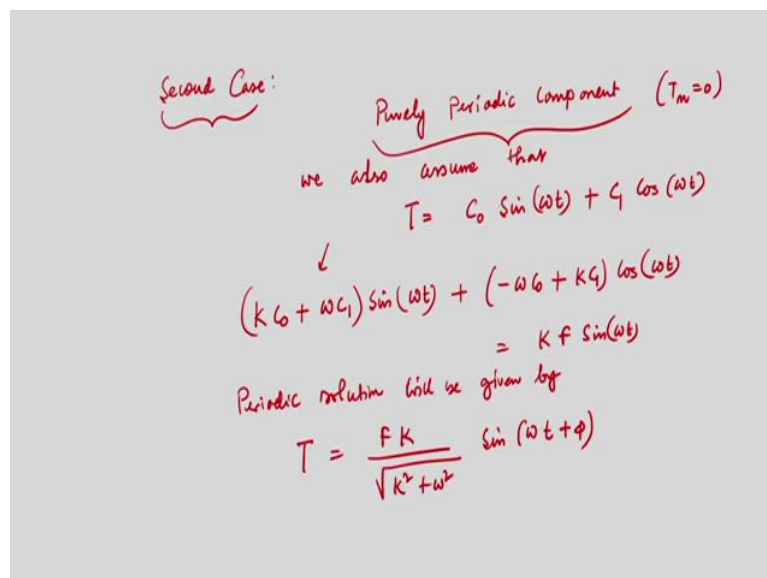 Second Case:
Purely Periodic Component (Tₘ=0)
we also assume that
T = C₀ Sin(ωt) + C₁ Cos(ωt)
(K C₀ + ωC₁) Sin(ωt) + (-ωC₀ + KC₁) Cos(ωt)
= K f Sin(ωt)
Periodic solution will be given by
T = fK / √(K² + ω²) Sin (ωt + φ)